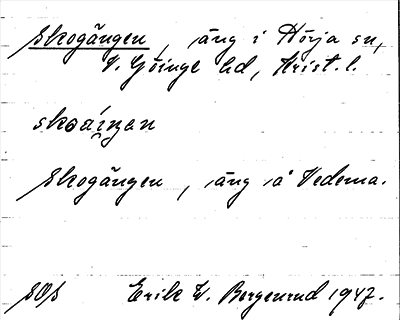 Skogängen, äng i Hörja sn,
V. Göinge hd, Krist. l.
skoäiŋən
Skogängen, äng å Vedema.
SOS Erik W. Borgenrud 1947.